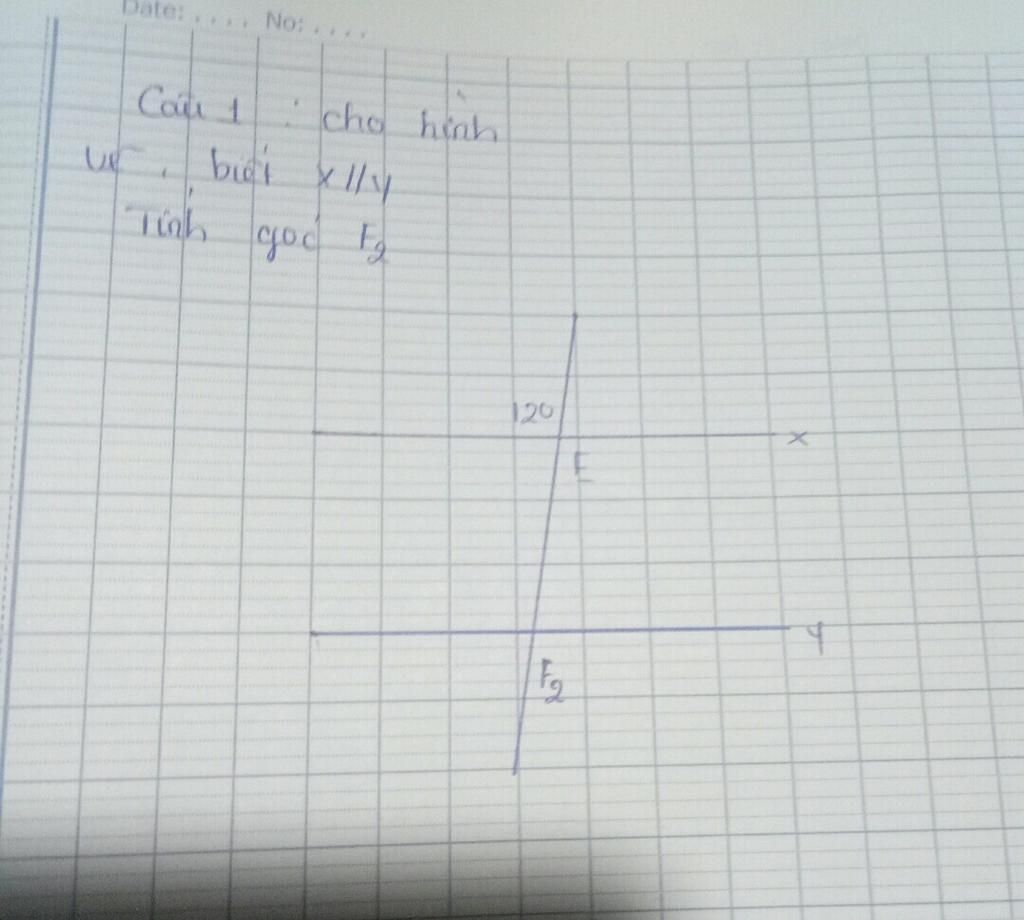 Date: .... No: ....
Câu 1 : cho hình
vẽ, biết x//y
Tính góc F2
120
x
E
y
F2